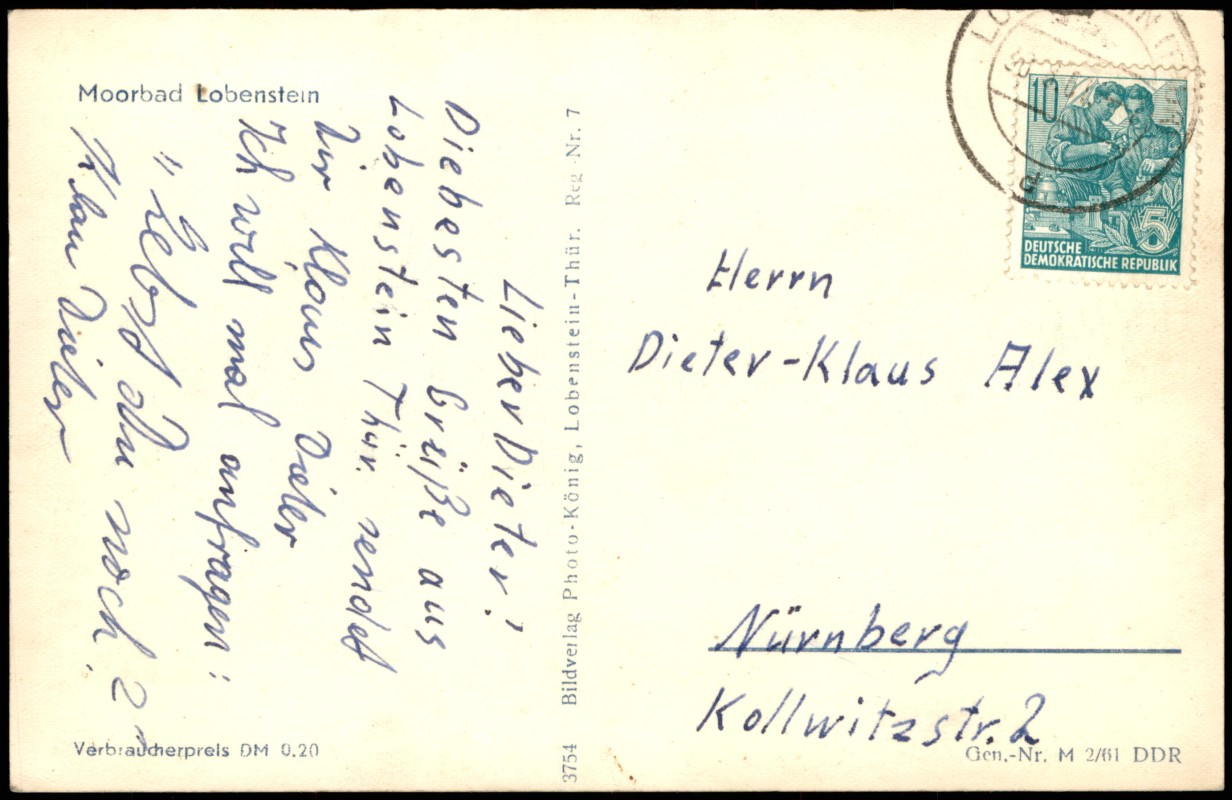 Moorbad Lobenstein
Lieber Dieter!
Die besten Grüße aus
Lobenstein Thür. sendet
Dir Klaus Dieter
Ich will mal anfragen:
"Lebst du noch?"
Klaus Dieter
Verbraucherpreis DM 0.20
3754 Bildverlag Photo-König, Lobenstein-Thür. Reg.-Nr. 7
10
5
DEUTSCHE
DEMOKRATISCHE REPUBLIK
Herrn
Dieter-Klaus Alex
Nürnberg
Kollwitzstr. 2
Gen.-Nr. M 2/61 DDR